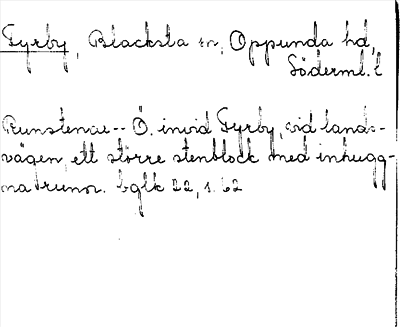 Fyrby, Blacksta sn, Oppunda hd,
Söderml. l
Runstenar -- Ö. invid Fyrby, vid lands-
vägen, ett större stenblock med inhugg-
na runor. bglk 22, s. 62